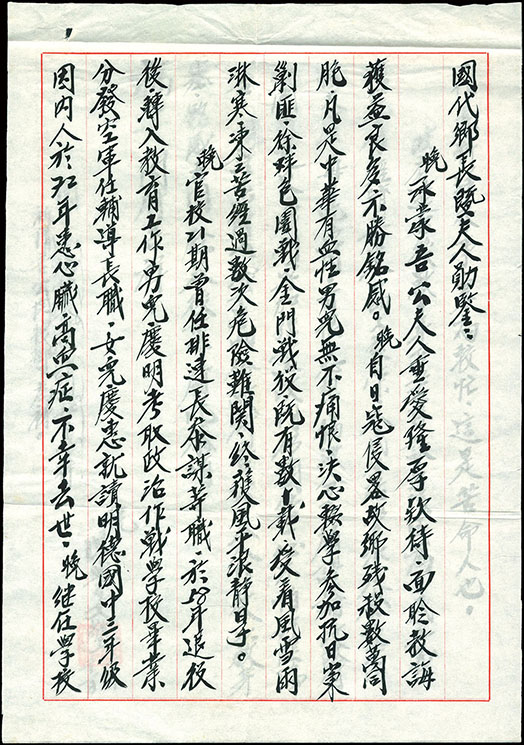 國代鄉長暨夫人勛鑒：
晚承蒙吾公夫人垂愛隆厚款待，面聆教誨
獲益良多不勝銘感。晚自日寇侵畧故鄉殘殺數萬同
胞，凡是中華有血性男兒無不痛恨，決心輟學參加抗日
剿匪，徐蚌包圍戰，金門戰役，既有數十載，受看風雪雨
淋寒凍之苦經過數次危險難關，終獲風平浪靜日子。
晚官校21期曾任排連長參謀等職，於58年退役
後，轉入教育工作男兒慶明考取政治作戰學校畢業
分發空軍任輔導長職，女兒慶忠就讀明德國中三年級
因內人於72年患心臟，高血症，不幸去世，晚繼任學校